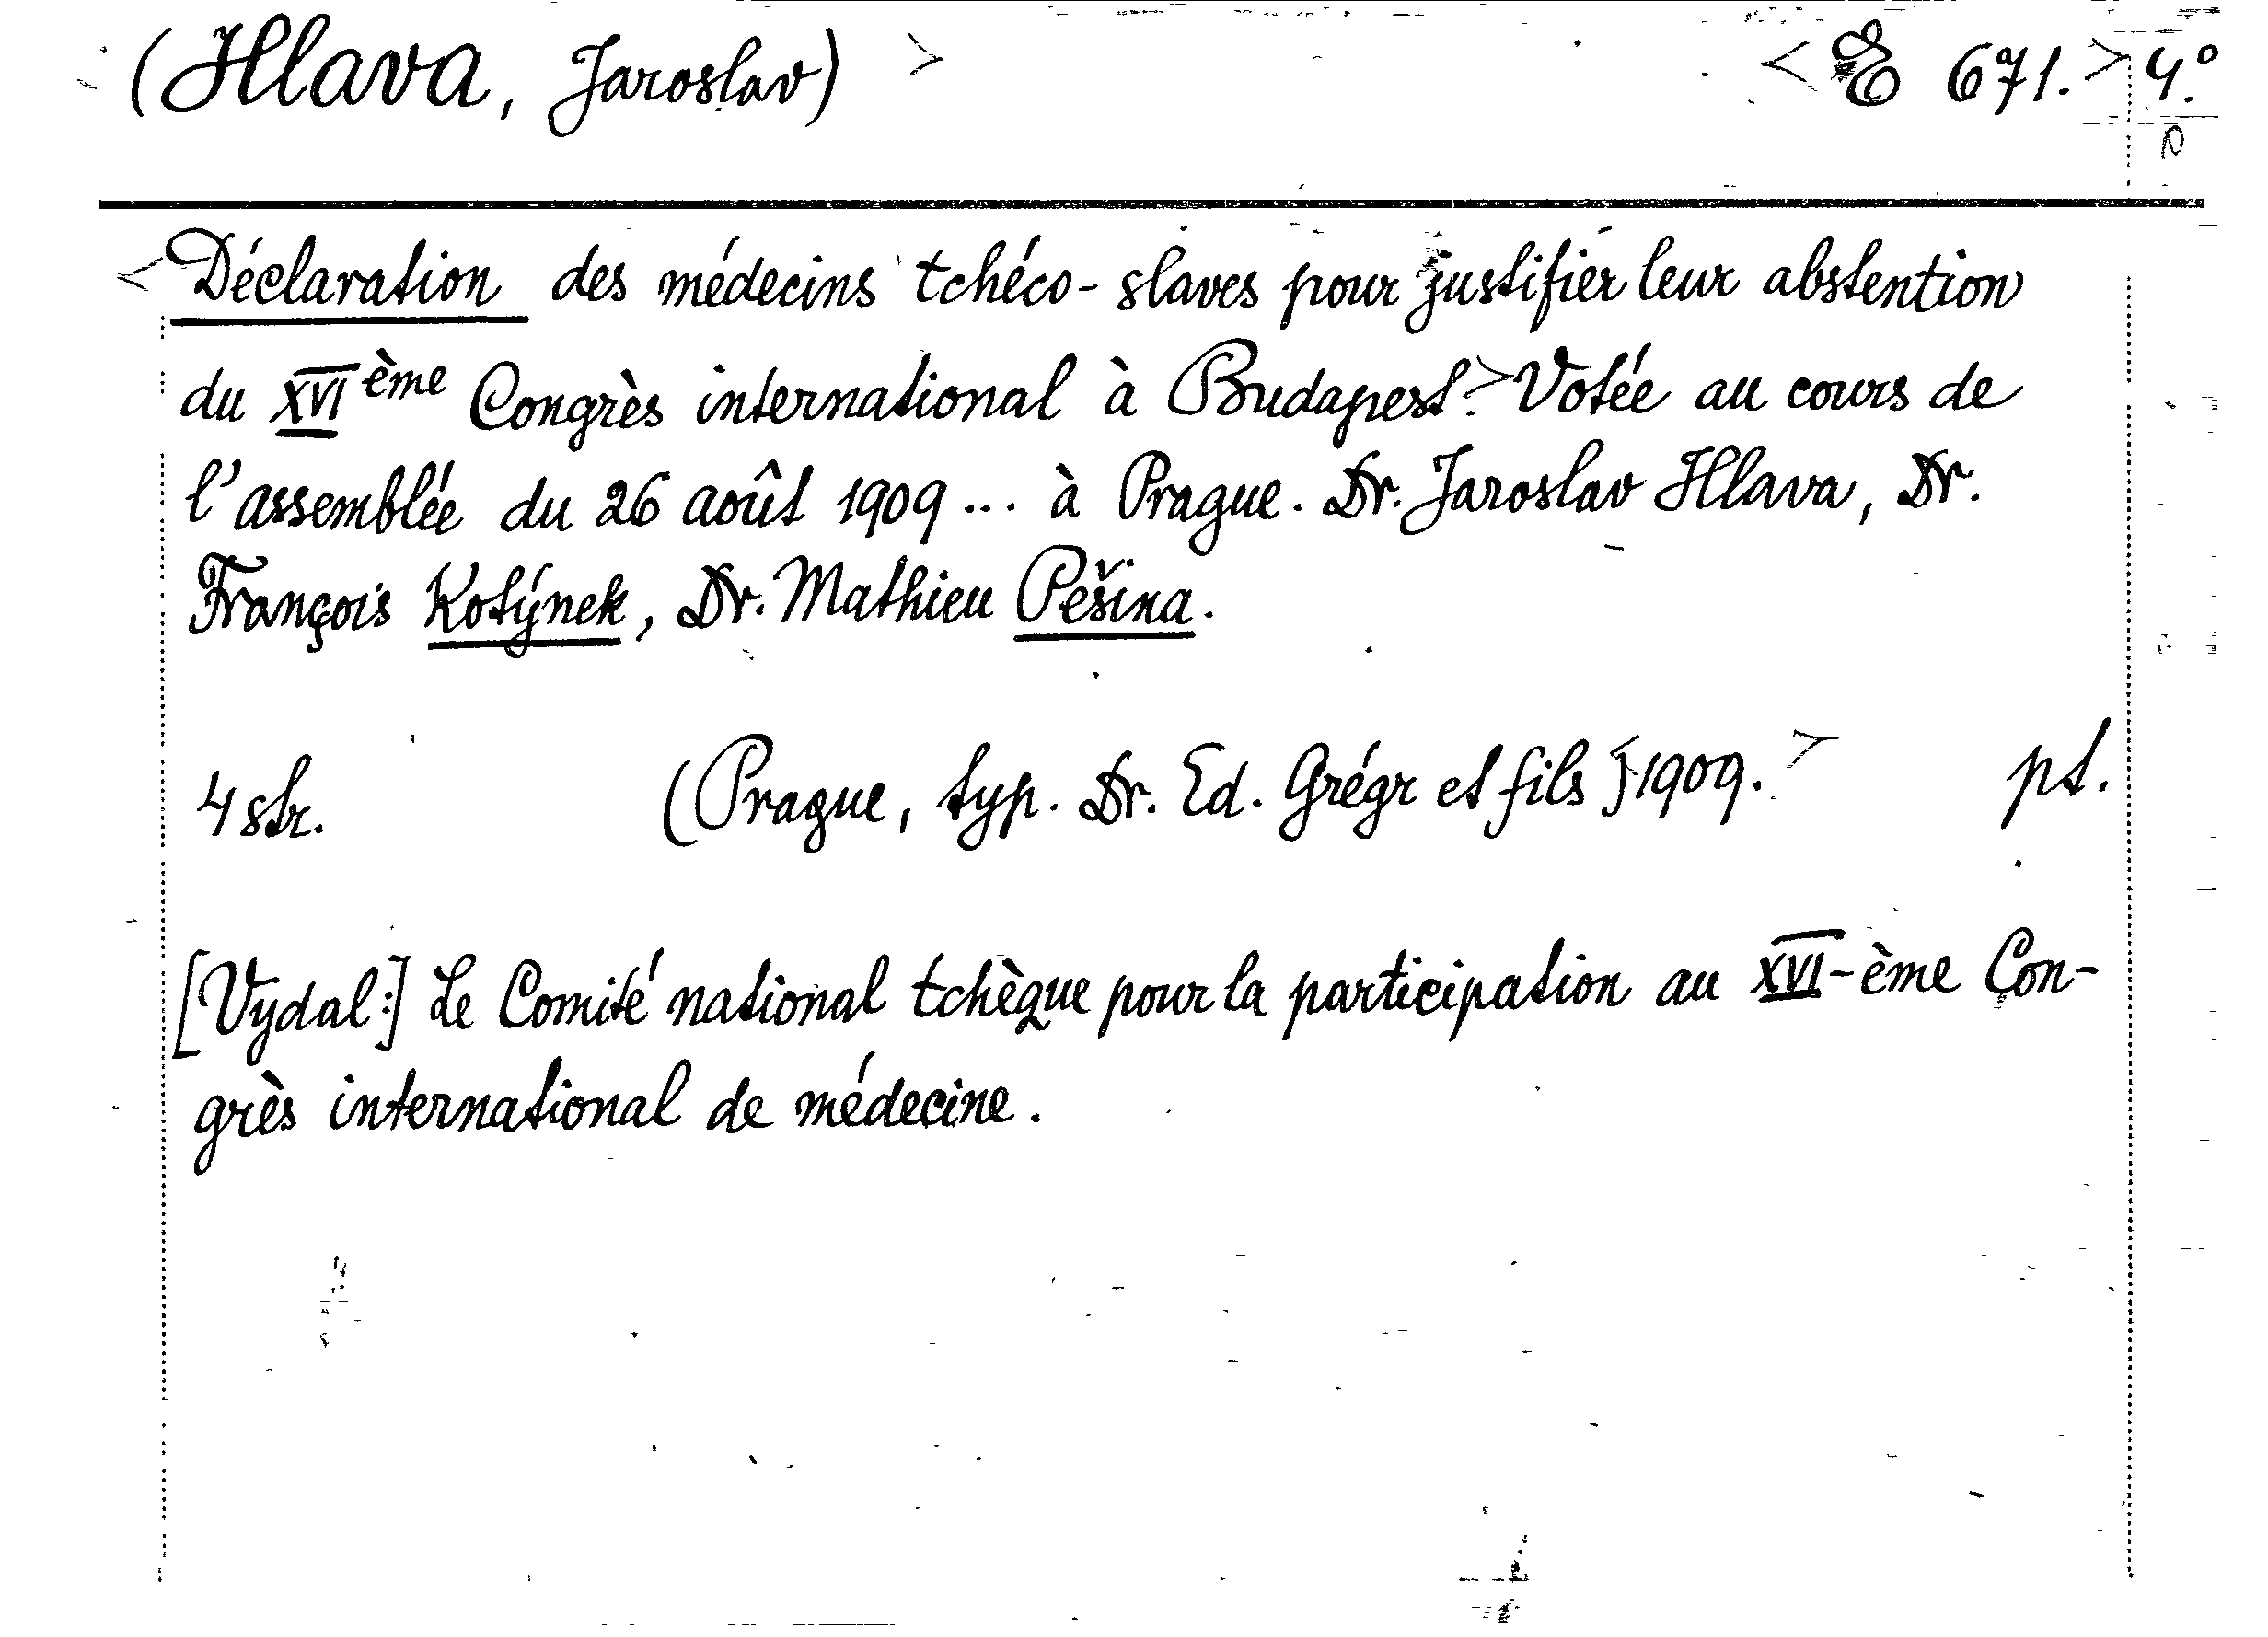 (Hlava, Jaroslav) > < E 671. > 4.°
< Déclaration des médecins tchéco-slaves pour justifier leur abstention
du XVI ème Congrès international à Budapest. > Votée au cours de
l'assemblée du 26 août 1909 ... à Prague. Dr. Jaroslav Hlava, Dr.
François Kotýnek, Dr. Mathieu Pešina.
4 str. (Prague, typ. Dr. Ed. Grégr et fils) 1909. > pt.
[Vydal:] Le Comité national tchèque pour la participation au XVI-ème Con-
grès international de médecine.